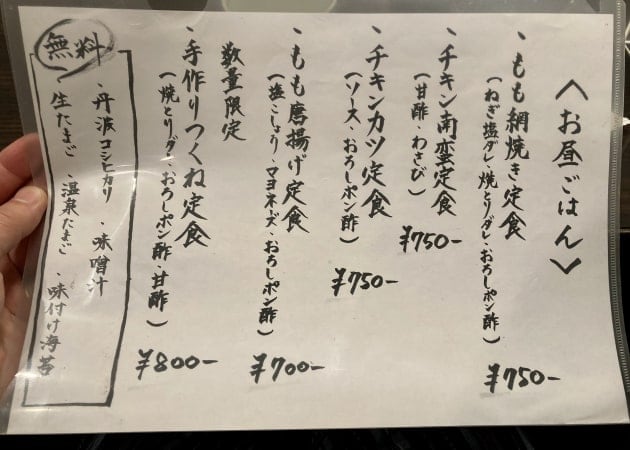 〈お昼ごはん〉
・もも網焼き定食
(ねぎ塩ダレ・焼とりダレ・おろしポン酢)
¥750-
・チキン南蛮定食
(甘酢・わさび)
¥750-
・チキンカツ定食
(ソース・おろしポン酢)
¥750-
・もも唐揚げ定食
(塩こしょう・マヨネーズ・おろしポン酢)
¥700-
数量限定
・手作りつくね定食
(焼とりダレ・おろしポン酢・甘酢)
¥800-
無料
・丹波コシヒカリ ・味噌汁
生たまご ・温泉たまご ・味付け海苔